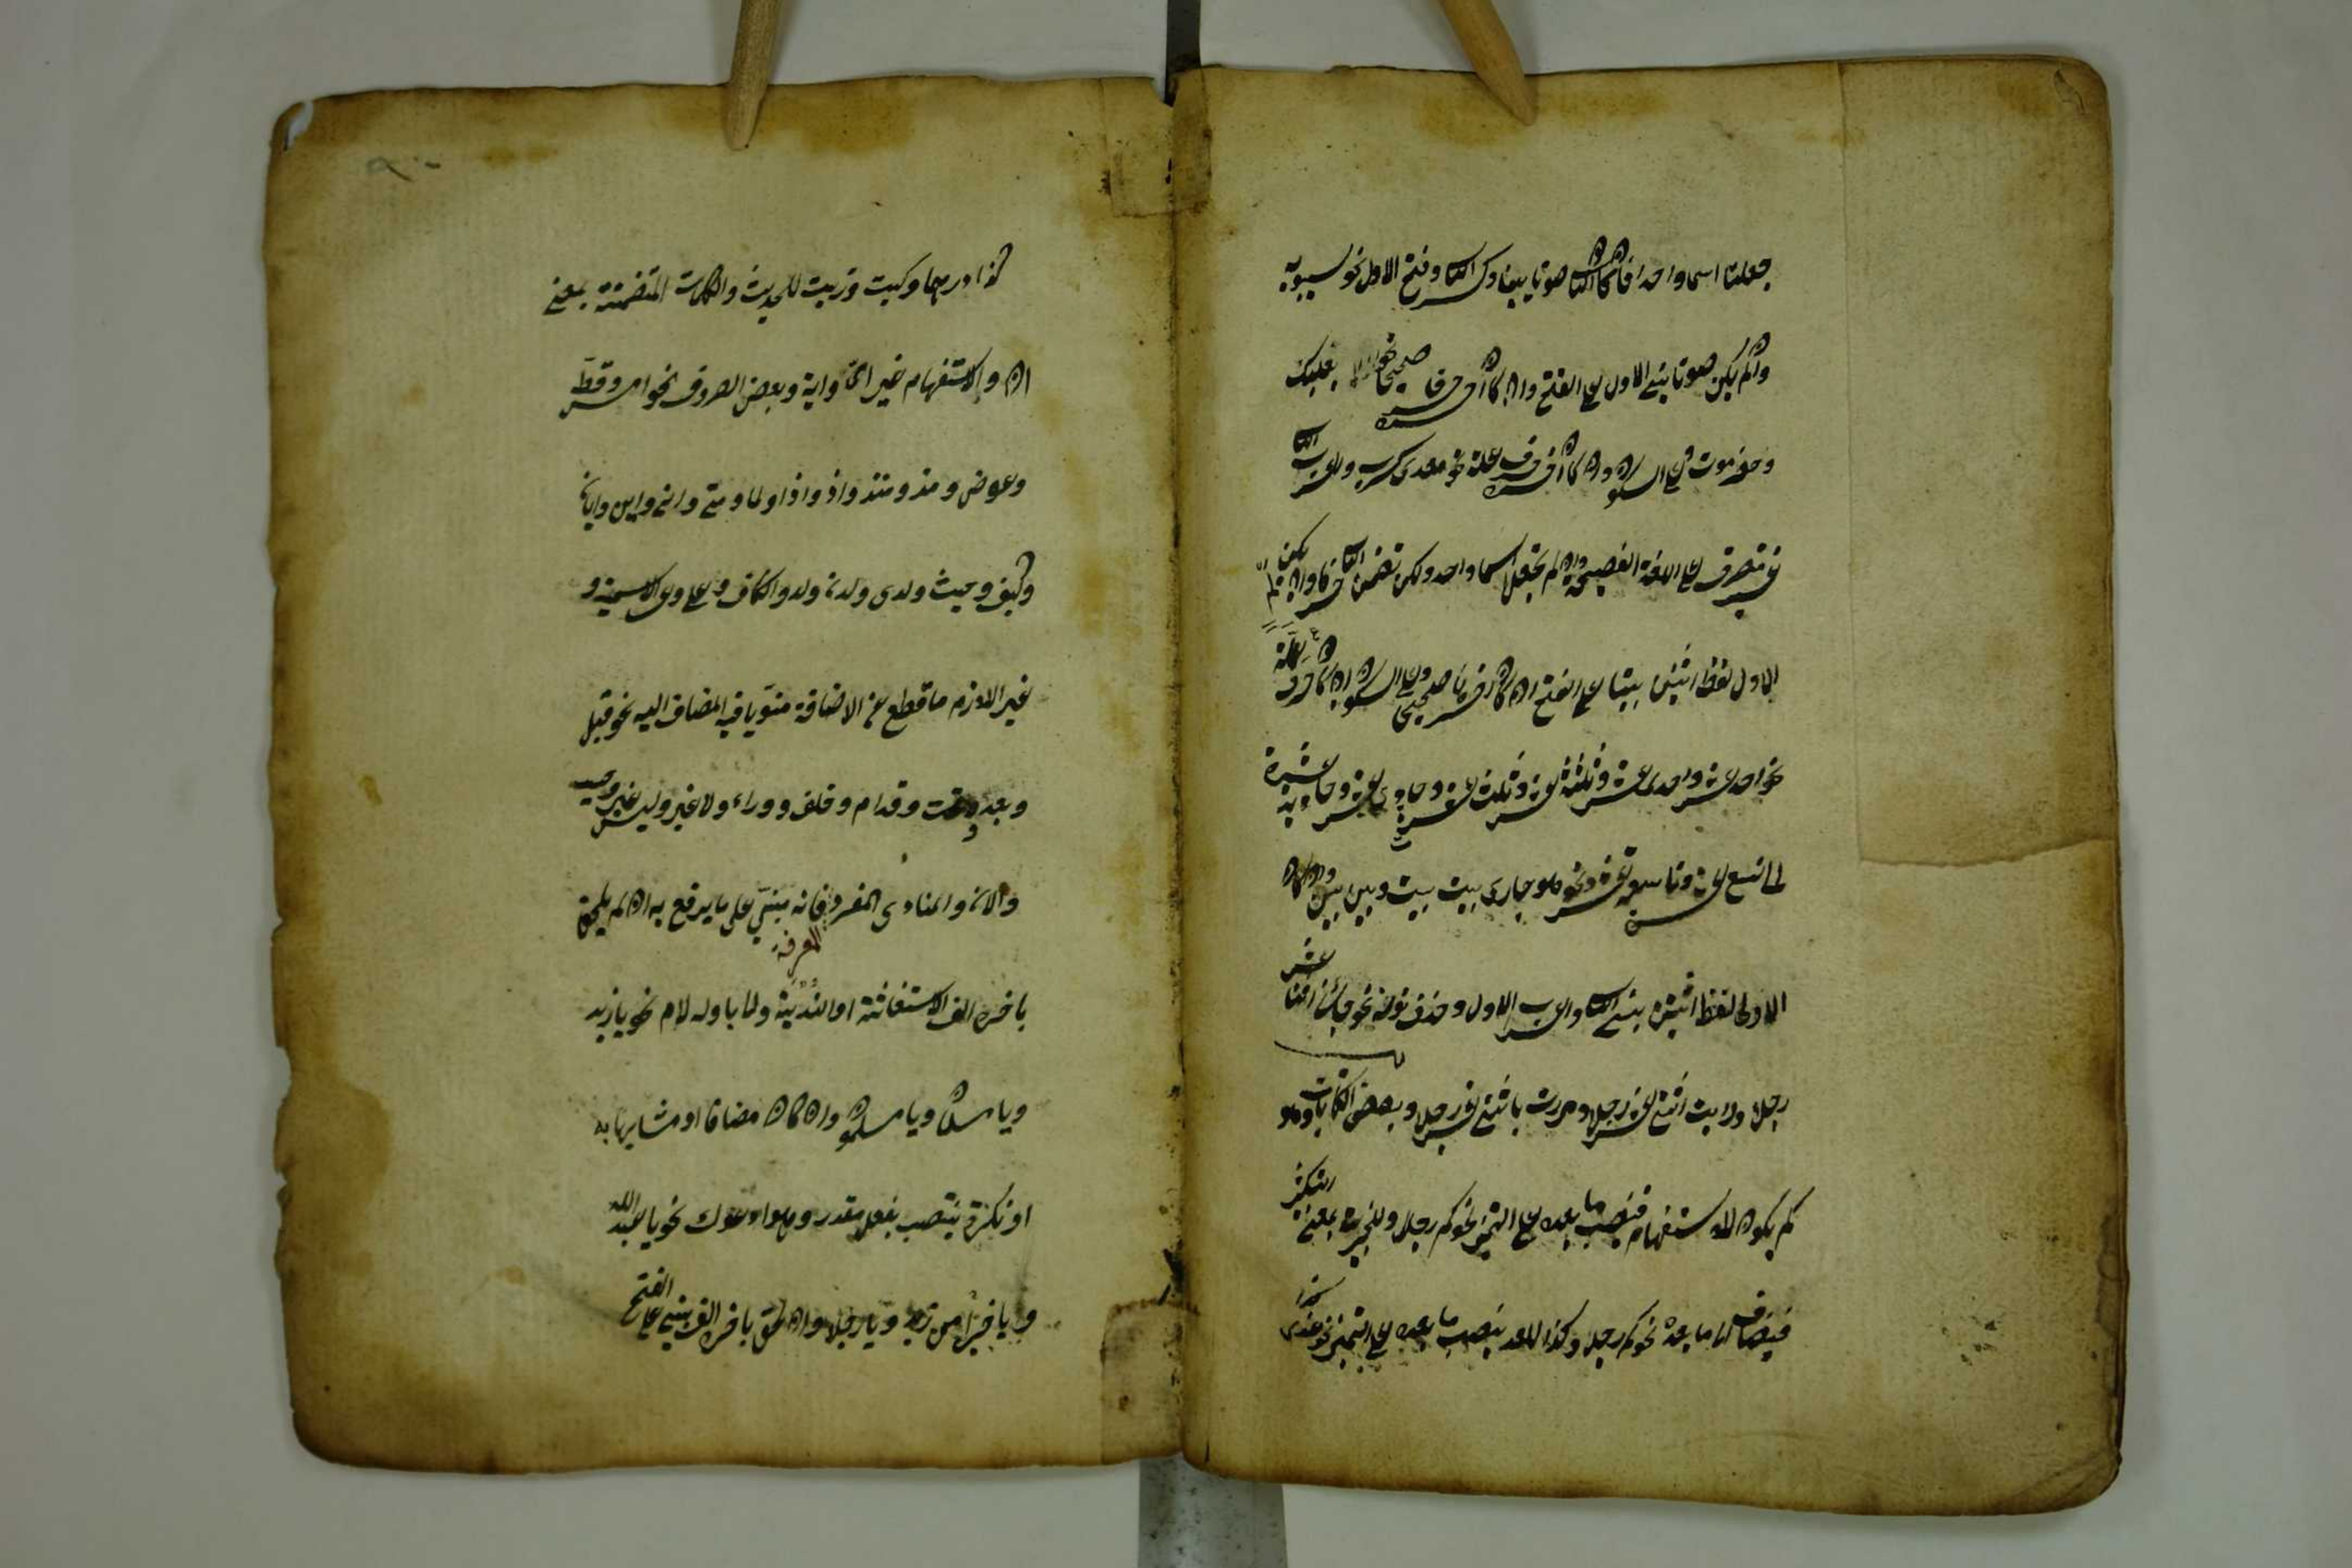 جعلتا اسما واحدا فان كان الثانى صوتا بنيا وكسر الثانى وفتح الاول نحو سيبويه
وان لم يكن صوتا بنى الاول على الفتح وان كان آخره حرفا صحيحا نحو بعلبك
وحضرموت وعلى السكون وان كان آخره حرف علة نحو معدى كرب ويعرب الثانى
غير منصرف على اللغة الفصيحة وان لم تجعل اسما واحدا ولكن تضمن الثانى حرفا وان لم يكن
الاول لفظ اثنين بنيتا على الفتح ان كان آخرهما صحيحين وعلى السكون ان كان حرف علة
نحو احد عشر واحدى عشرة وثلثة عشر وثلث عشرة وحادى عشر وحادية عشرة
الى تاسع عشر وتاسعة عشرة ونحو هو جارى بيت بيت وبين بين وان كان
الاول لفظ اثنين بنى الثانى واعرب الاول وحذف نونه نحو جائنى اثنا عشر
رجلا ورايت اثنى عشر رجلا ومررت باثنى عشر رجلا وبعض الكنايات وهو
كم يكون للاستفهام فينصب ما بعده على التمييز نحو كم رجلا وللخبرية بمعنى التكثير
فيضاف الى ما بعده نحو كم رجل وكذا للعدد ينصب ما بعده على التمييز نحو عندى كذا
كذا درهما وكيت وذيت للحديث والكلمات المتضمنة بمعنى
ان والاستفهام غير اى واية وبعض الظروف نحو امس وقط
وعوض ومذ ومنذ واذ واذا ولما ومتى وانى واين وايان
وكيف وحيث ولدى ولدن ولد والكاف وعلى وعن الاسمية و
غير اللازم ما قطع عن الاضافة منويا فيه المضاف اليه نحو قبل
وبعد وتحت وقدام وخلف ووراء ولا غير وليس غير وحسب
والان والمنادى المفرد المعرفة فانه مبنى على ما يرفع به ان لم يلحق
باخره الف الاستغاثة او الندبة ولا باوله لام نحو يا زيد
ويا مسلمان ويا مسلمون وان كان مضافا او مشابها به
او نكرة ينتصب بفعل مقدر وهو ادعوك نحو يا عبد الله
ويا خيرا من زيد ويا رجلا وان لحق باخره الف بنى على الفتح